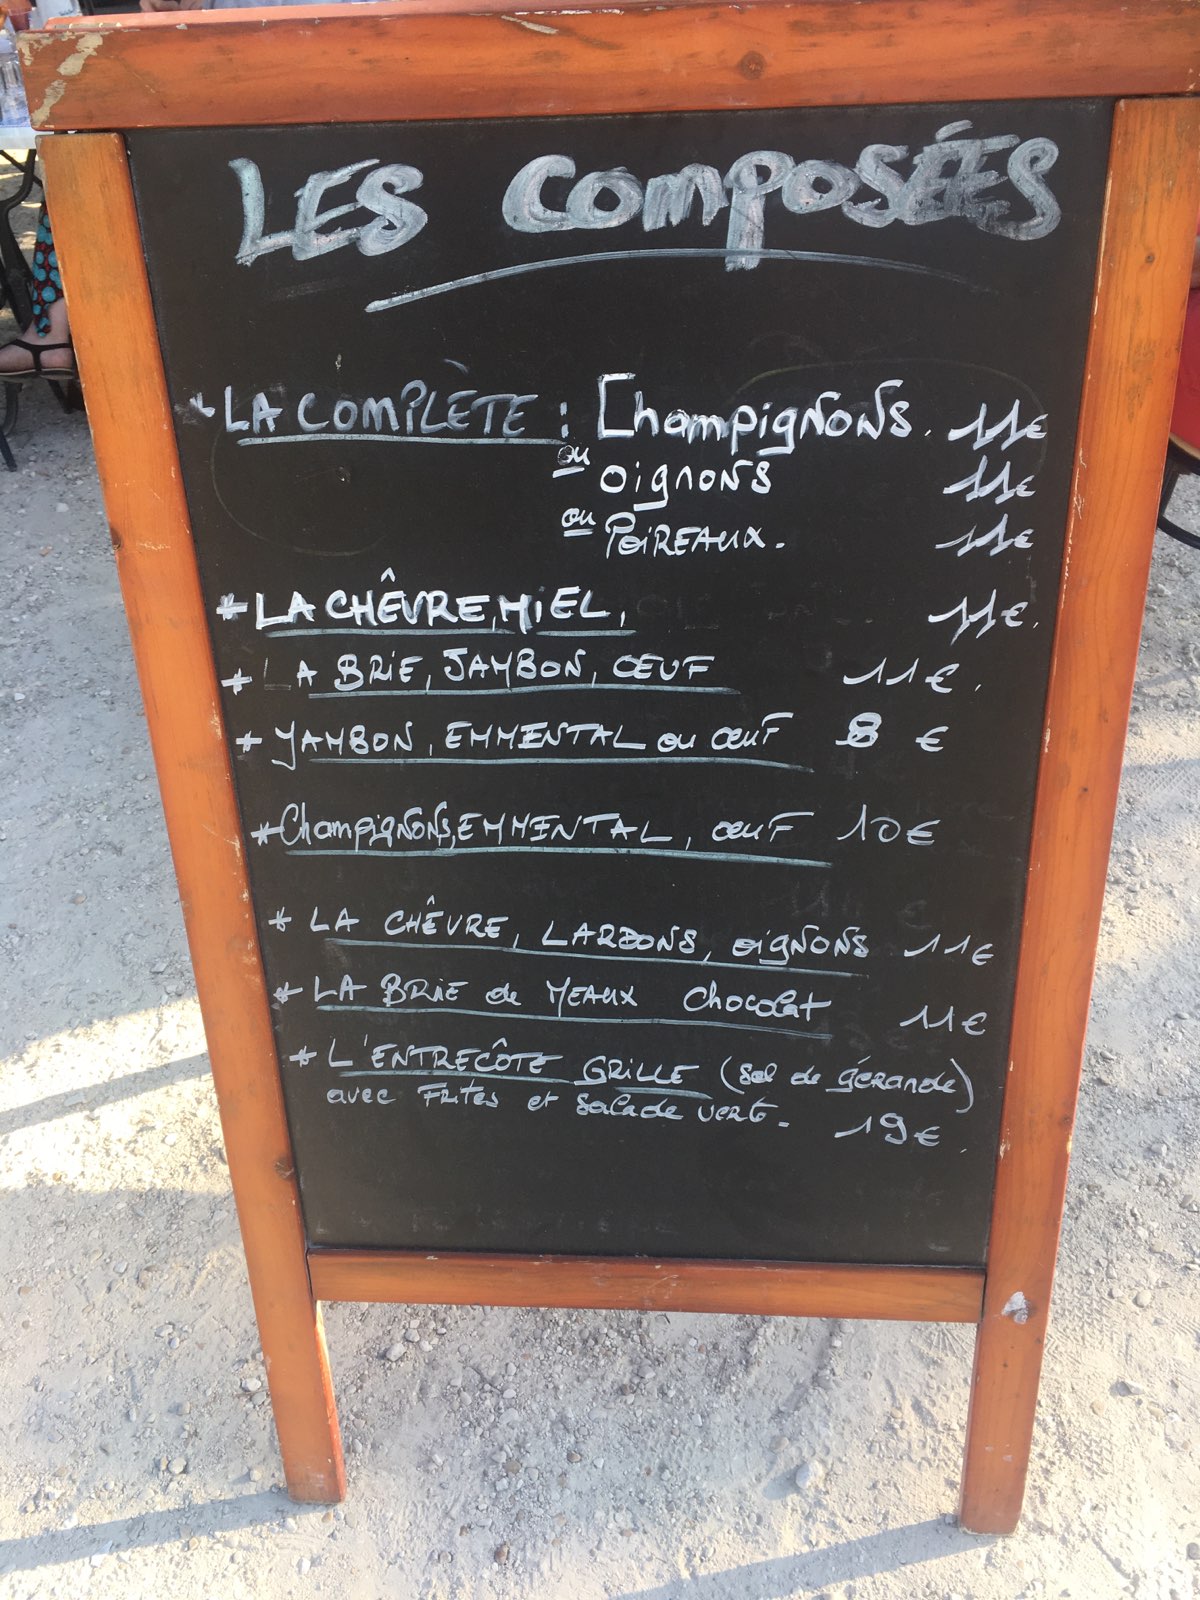 LES COMPOSÉES
* LA COMPLÈTE : Champignons. 11€
ou oignons 11€
ou POIREAUX. 11€
* LA CHÊVRE, MIEL, 11€.
* LA BRIE, JAMBON, ŒUF 11€.
* JAMBON, EMMENTAL ou œuF 8 €
* Champignons, EMMENTAL, œuF 10€
* LA CHÊVRE, LARDONS, oignons 11€
* LA BRIE de MEAUX Chocolat 11€
* L'ENTRECÔTE GRILLE (Sel de gérande)
avec Frites et Salade verte. 19€